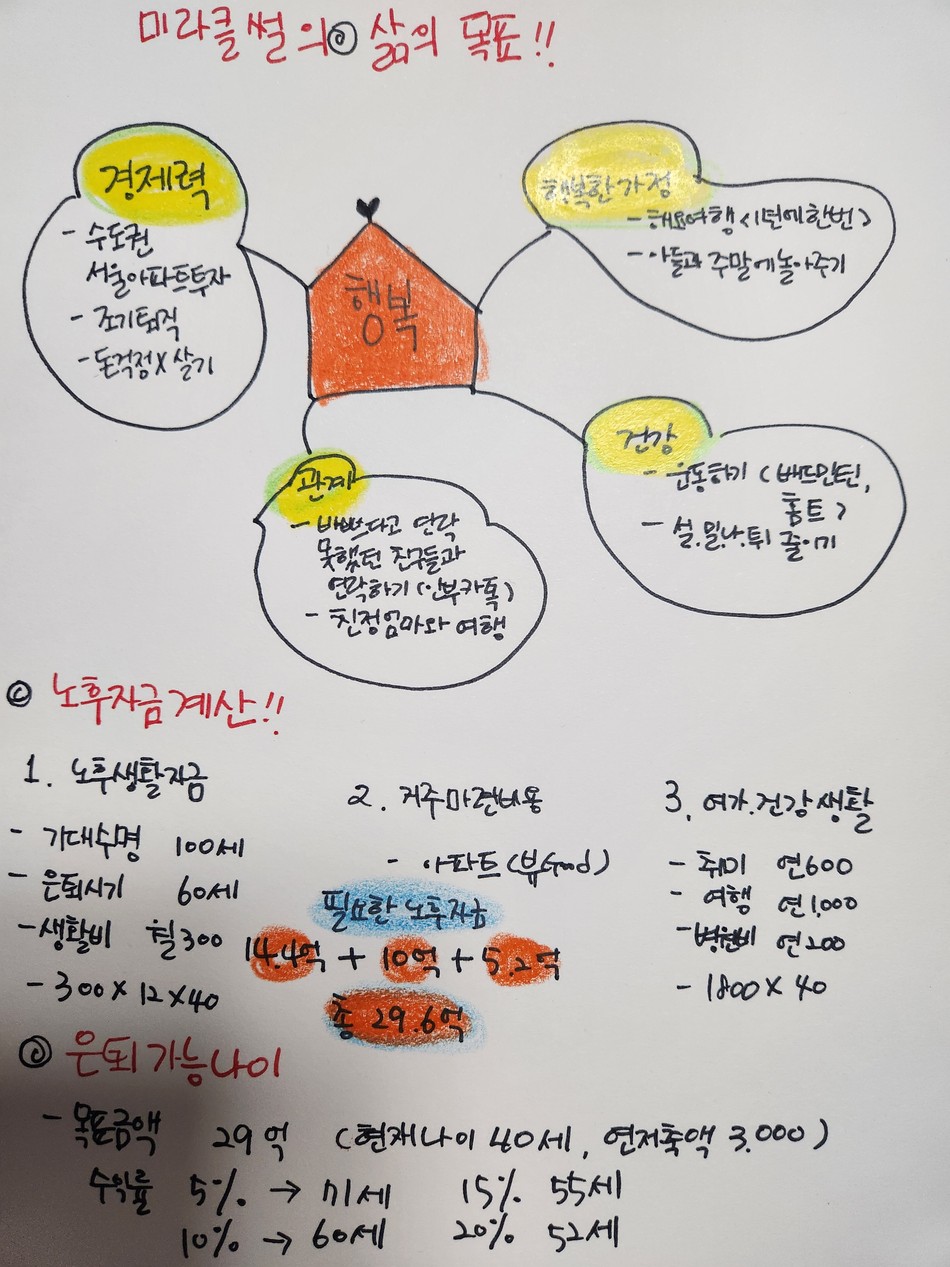 미라클썰의 삶의 목표!!
경제력
- 수도권
서울아파트투자
- 조기퇴직
- 돈걱정X 살기
행복
행복한가정
- 해외여행 <1년에한번>
- 아들과 주말에놀아주기
관계
- 바쁘다고 연락
못했던 친구들과
연락하기 (안부카톡)
- 친정엄마와 여행
건강
- 운동하기 (배드민턴,
홈트)
- 설.밀.나.튀 줄이기
ⓒ 노후자금계산!!
1. 노후생활자금
- 기대수명 100세
- 은퇴시기 60세
- 생활비 월300
- 300 x 12 x 40
2. 거주마련비용
- 아파트 (뷰Good)
3. 여가.건강생활
- 취미 연600
- 여행 연1,000
- 병원비 연200
- 1800 x 40
필요한 노후자금
14.4억 + 10억 + 5.2억
총 29.6억
은퇴가능나이
- 목표금액 29억 (현재나이 40세, 연저축액 3,000)
수익률 5% → 71세 15% 55세
10% → 60세 20% 52세